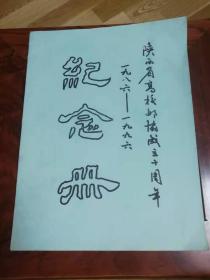 陕西省高校邮协成立十周年
一九八六——一九九六
紀念册